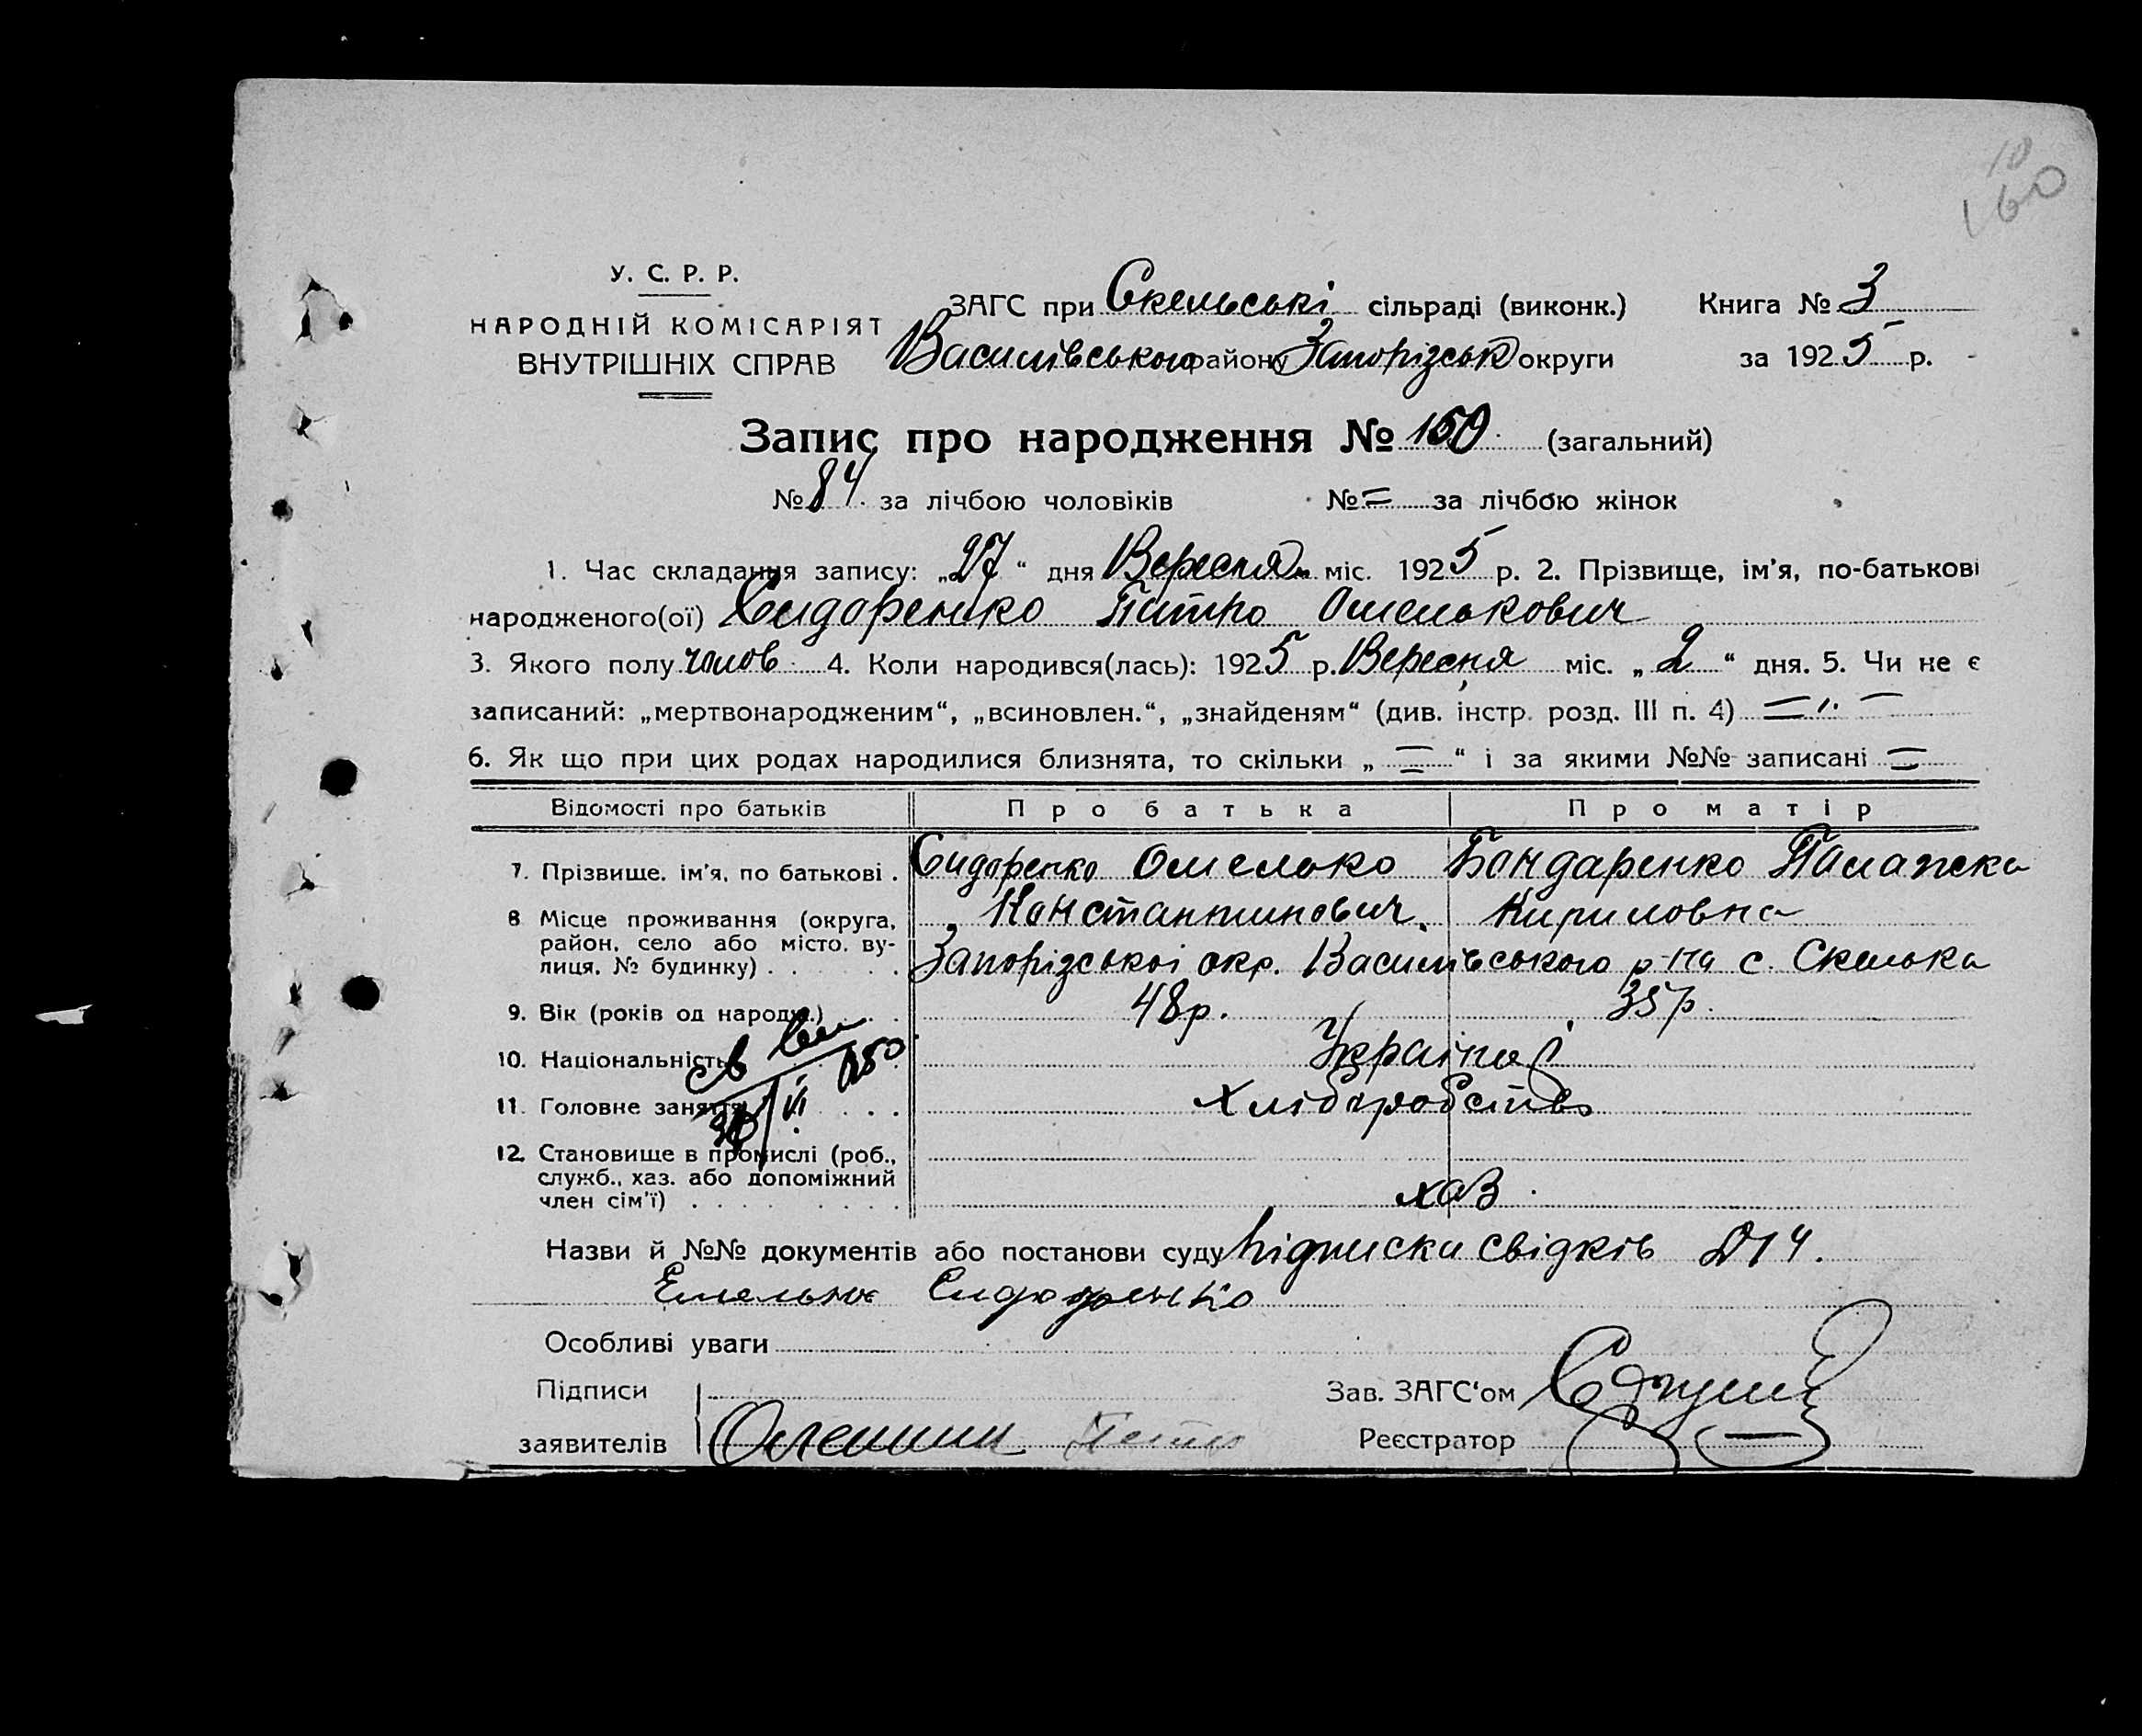 10
160
У. С. Р. Р.
НАРОДНІЙ КОМІСАРІЯТ
ВНУТРІШНІХ СПРАВ
ЗАГС при Скельські сільраді (виконк.) Книга № 3
Василівського району Запорізськ округи за 1925 р.
Запис про народження № 150 (загальний)
№ 84 за лічбою чоловіків № = за лічбою жінок
1. Час складання запису: „27“ дня Вересня міс. 1925 р. 2. Прізвище, ім'я, по-батькові
народженого(ої) Сидоренко Питро Омелькович
3. Якого полу чолов 4. Коли народився(лась): 1925 р. Вересня міс. „2“ дня. 5. Чи не є
записаний: „мертвонародженим“, „всиновлен.“, „знайденям“ (див. інстр. розд. III п. 4) = „ —
6. Як що при цих родах народилися близнята, то скільки „=“ і за якими №№ записані =
Відомості про батьків Про батька Про матір
7. Прізвище, ім'я, по батькові . Сидоренко Омелько Бондаренко Палажка
Константинович. Кириловна
8 Місце проживання (округа,
район, село або місто, ву-
лиця, № будинку) . . . . Запорізської окр. Василівського р-на с. Скелька
9. Вік (років од народж.) . . . 48р. 35р.
10. Національність Україна
11. Головне заняття . . . Хліборобство
св 050
30/VI
12. Становище в промислі (роб.,
служб., хаз. або допоміжний
член сім'ї) . . . . . . . . хаз.
Назви й №№ документів або постанови суду Підписки свідків 214.
Емельян Сидоренко
Особливі уваги
Підписи Зав. ЗАГС'ом
заявителів Реєстратор